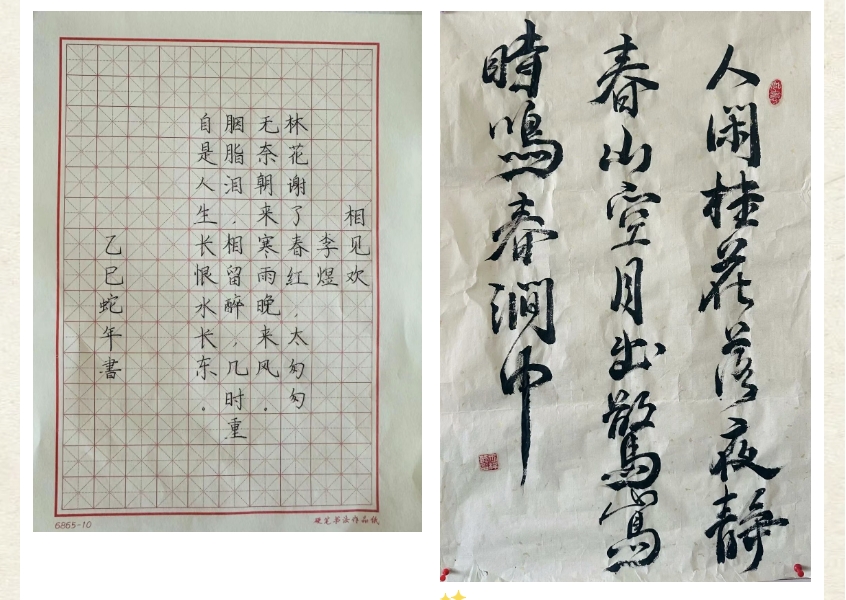 相见欢
李煜
林花谢了春红，太匆匆
无奈朝来寒雨晚来风。
胭脂泪，相留醉，几时重
自是人生长恨水长东。
乙巳蛇年書
6865-10
硬笔书法作品纸
人閑桂花落夜静
春山空月出驚山鳥
時鳴春澗中